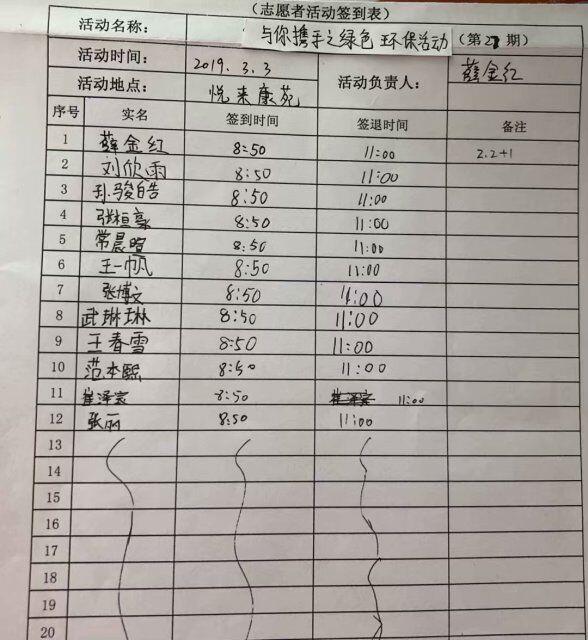 （志愿者活动签到表）
活动名称： 与你携手之绿色 环保活动 （第2 期）
活动时间： 2019.3.3 活动负责人： 薛金红
活动地点： 悦来康苑
序号 实名 签到时间 签退时间 备注
1 薛金红 8:50 11:00 2.2+1
2 刘欣雨 8:50 11:00
3 孙骏皓 8:50 11:00
4 张桓豪 8:50 11:00
5 常晨暄 8:50 11:00
6 王一帆 8:50 11:00
7 张博文 8:50 11:00
8 武琳琳 8:50 11:00
9 王春雪 8:50 11:00
10 范本熙 8:50 11:00
11 崔泽宸 8:50 崔泽宸 11:00
12 张丽 8:50 11:00
13
14
15
16
17
18
19
20